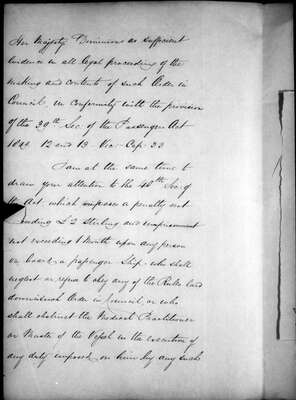 Her Majesty's Dominions as sufficient
Evidence in all legal proceedings of the
making and contents of such Order in
Council, in conformity with the provision
of the 39th Sec. of the Passengers Act
12 and 13 Vic: Cap: 33
I am at the same time to
draw your attention to the 40th Sec. of
the Act which imposes a penalty not
exceeding £2 Sterling and imprisonment
not exceeding 1 Month upon any person
on board a passenger Ship who shall
neglect or refuse to obey any of the Rules laid
down in such Order in Council, or who
shall obstruct the Medical Practitioner
or Master of the Vessel in the execution of
any duty imposed on him by any such